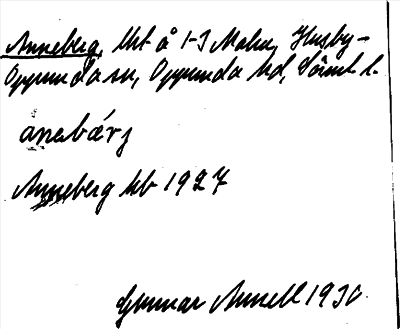 Anneberg, lht å 1-3 Malm, Husby-
Oppunda sn, Oppunda hd, Söml l.
anebærj
Anneberg hb 1927
Gunnar Annell 1930.